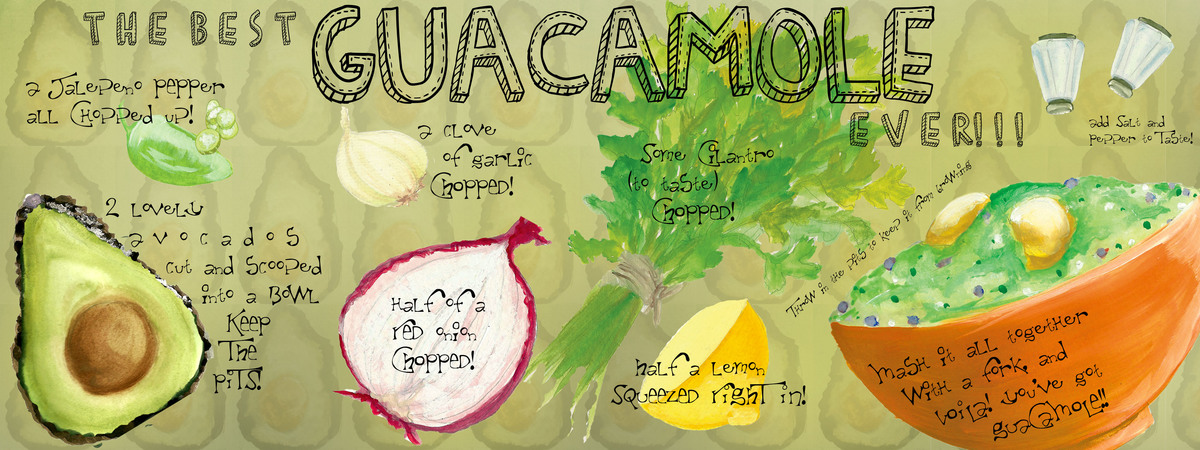 THE BEST
GUACAMOLE
EVER!!!
a Jalepeno pepper
all Chopped up!
a clove
of garlic
Chopped!
Some Cilantro
(to taste)
Chopped!
add Salt and
pepper to Taste!
2 Lovely
avocados
cut and Scooped
into a Bowl
Keep
The
piTS!
Half of a
red onion
Chopped!
half a Lemon
Squeezed righT in!
Throw in the piTs to keep it from browning
Mash it all together
With a fork, and
voila! you've got
guaCaMole!!